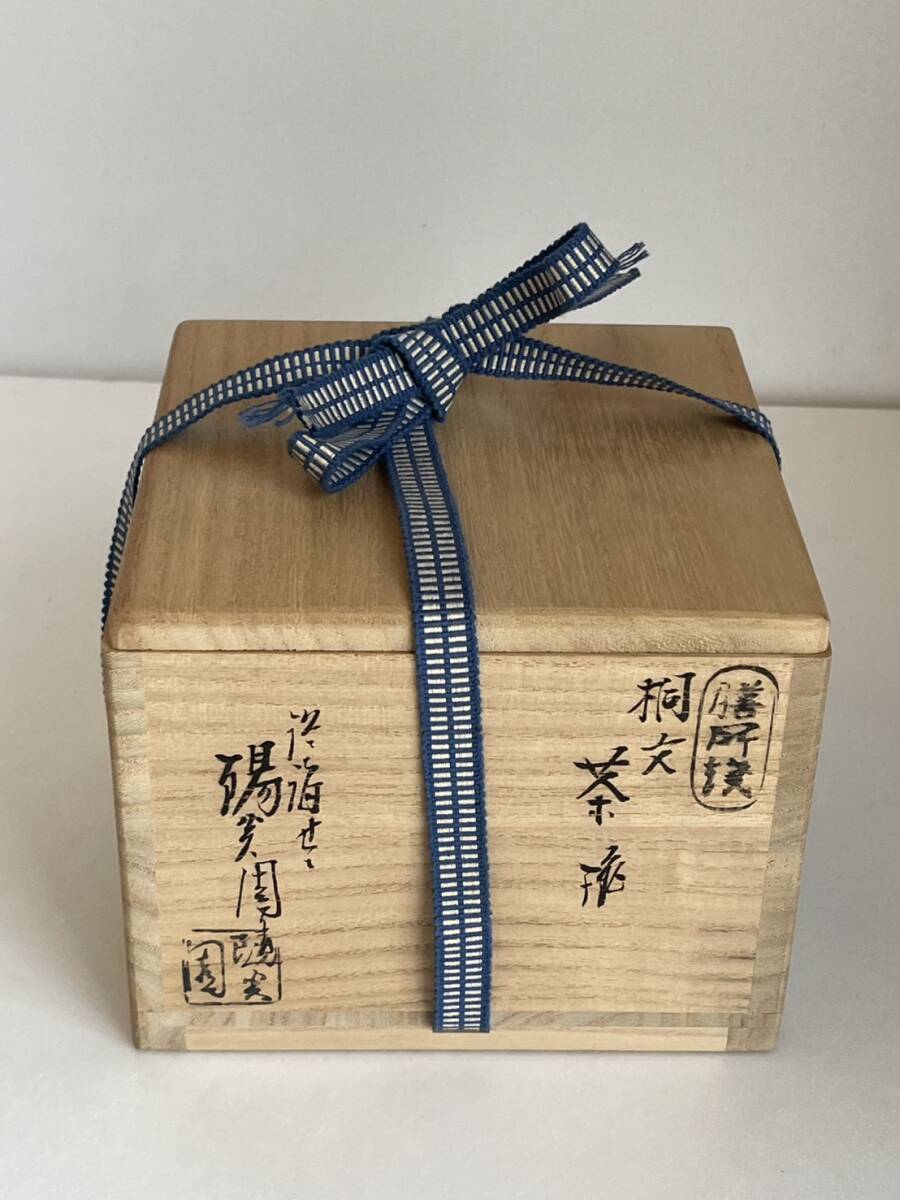 膳所焼
桐文
茶碗
陽炎園
陽炎園